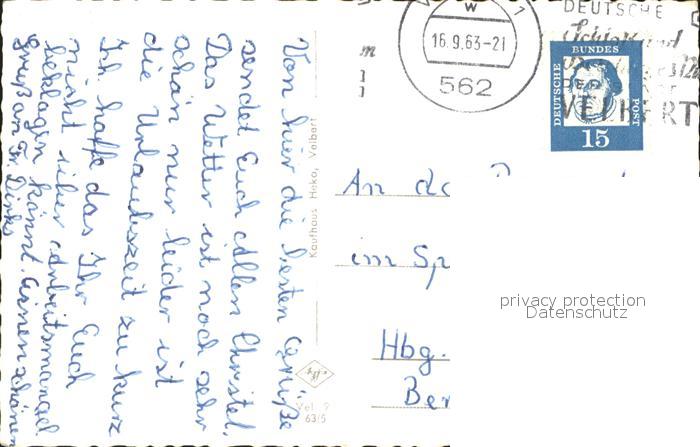 Von hier die besten Grüße
sendet Euch Allen Christel.
Das Wetter ist noch sehr
schön nur leider ist
die Urlaubszeit zu kurz
Ich hoffe das Ihr Euch
nicht über Arbeitsmangel
beklagen könnt. Einen schönen
Gruß an Fr. Dirks
Kaufhaus Heka, Velbert
Vel 9
63/5
16.9.63-21
562
DEUTSCHE
VELBERT
DEUTSCHE
BUNDES
POST
15
An de
im Sp
Hbg.
Ber
privacy protection
Datenschutz